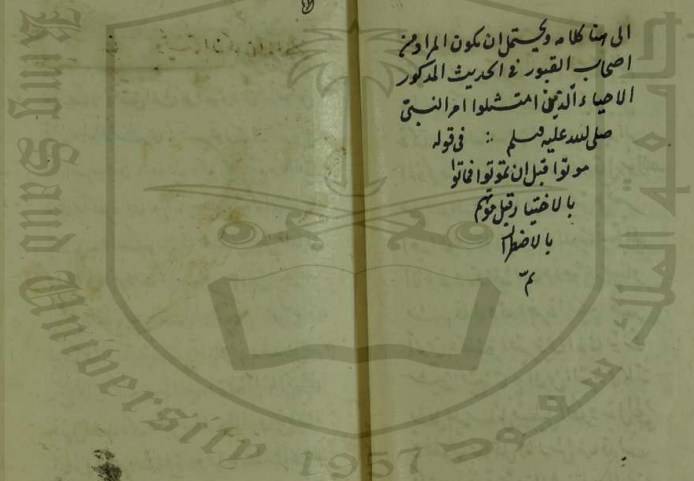 الى هنا كلامه ويحتمل ان يكون المراد من
اصحاب القبور فى الحديث المذكور
الاحياء الذين امتثلوا امر النبى
صلى الله عليه وسلم : فى قوله
موتوا قبل ان تموتوا فماتوا
بالاختيار قبل موتهم
بالاضطرار
تم
King Saud University
1957
جامعة الملك سعود